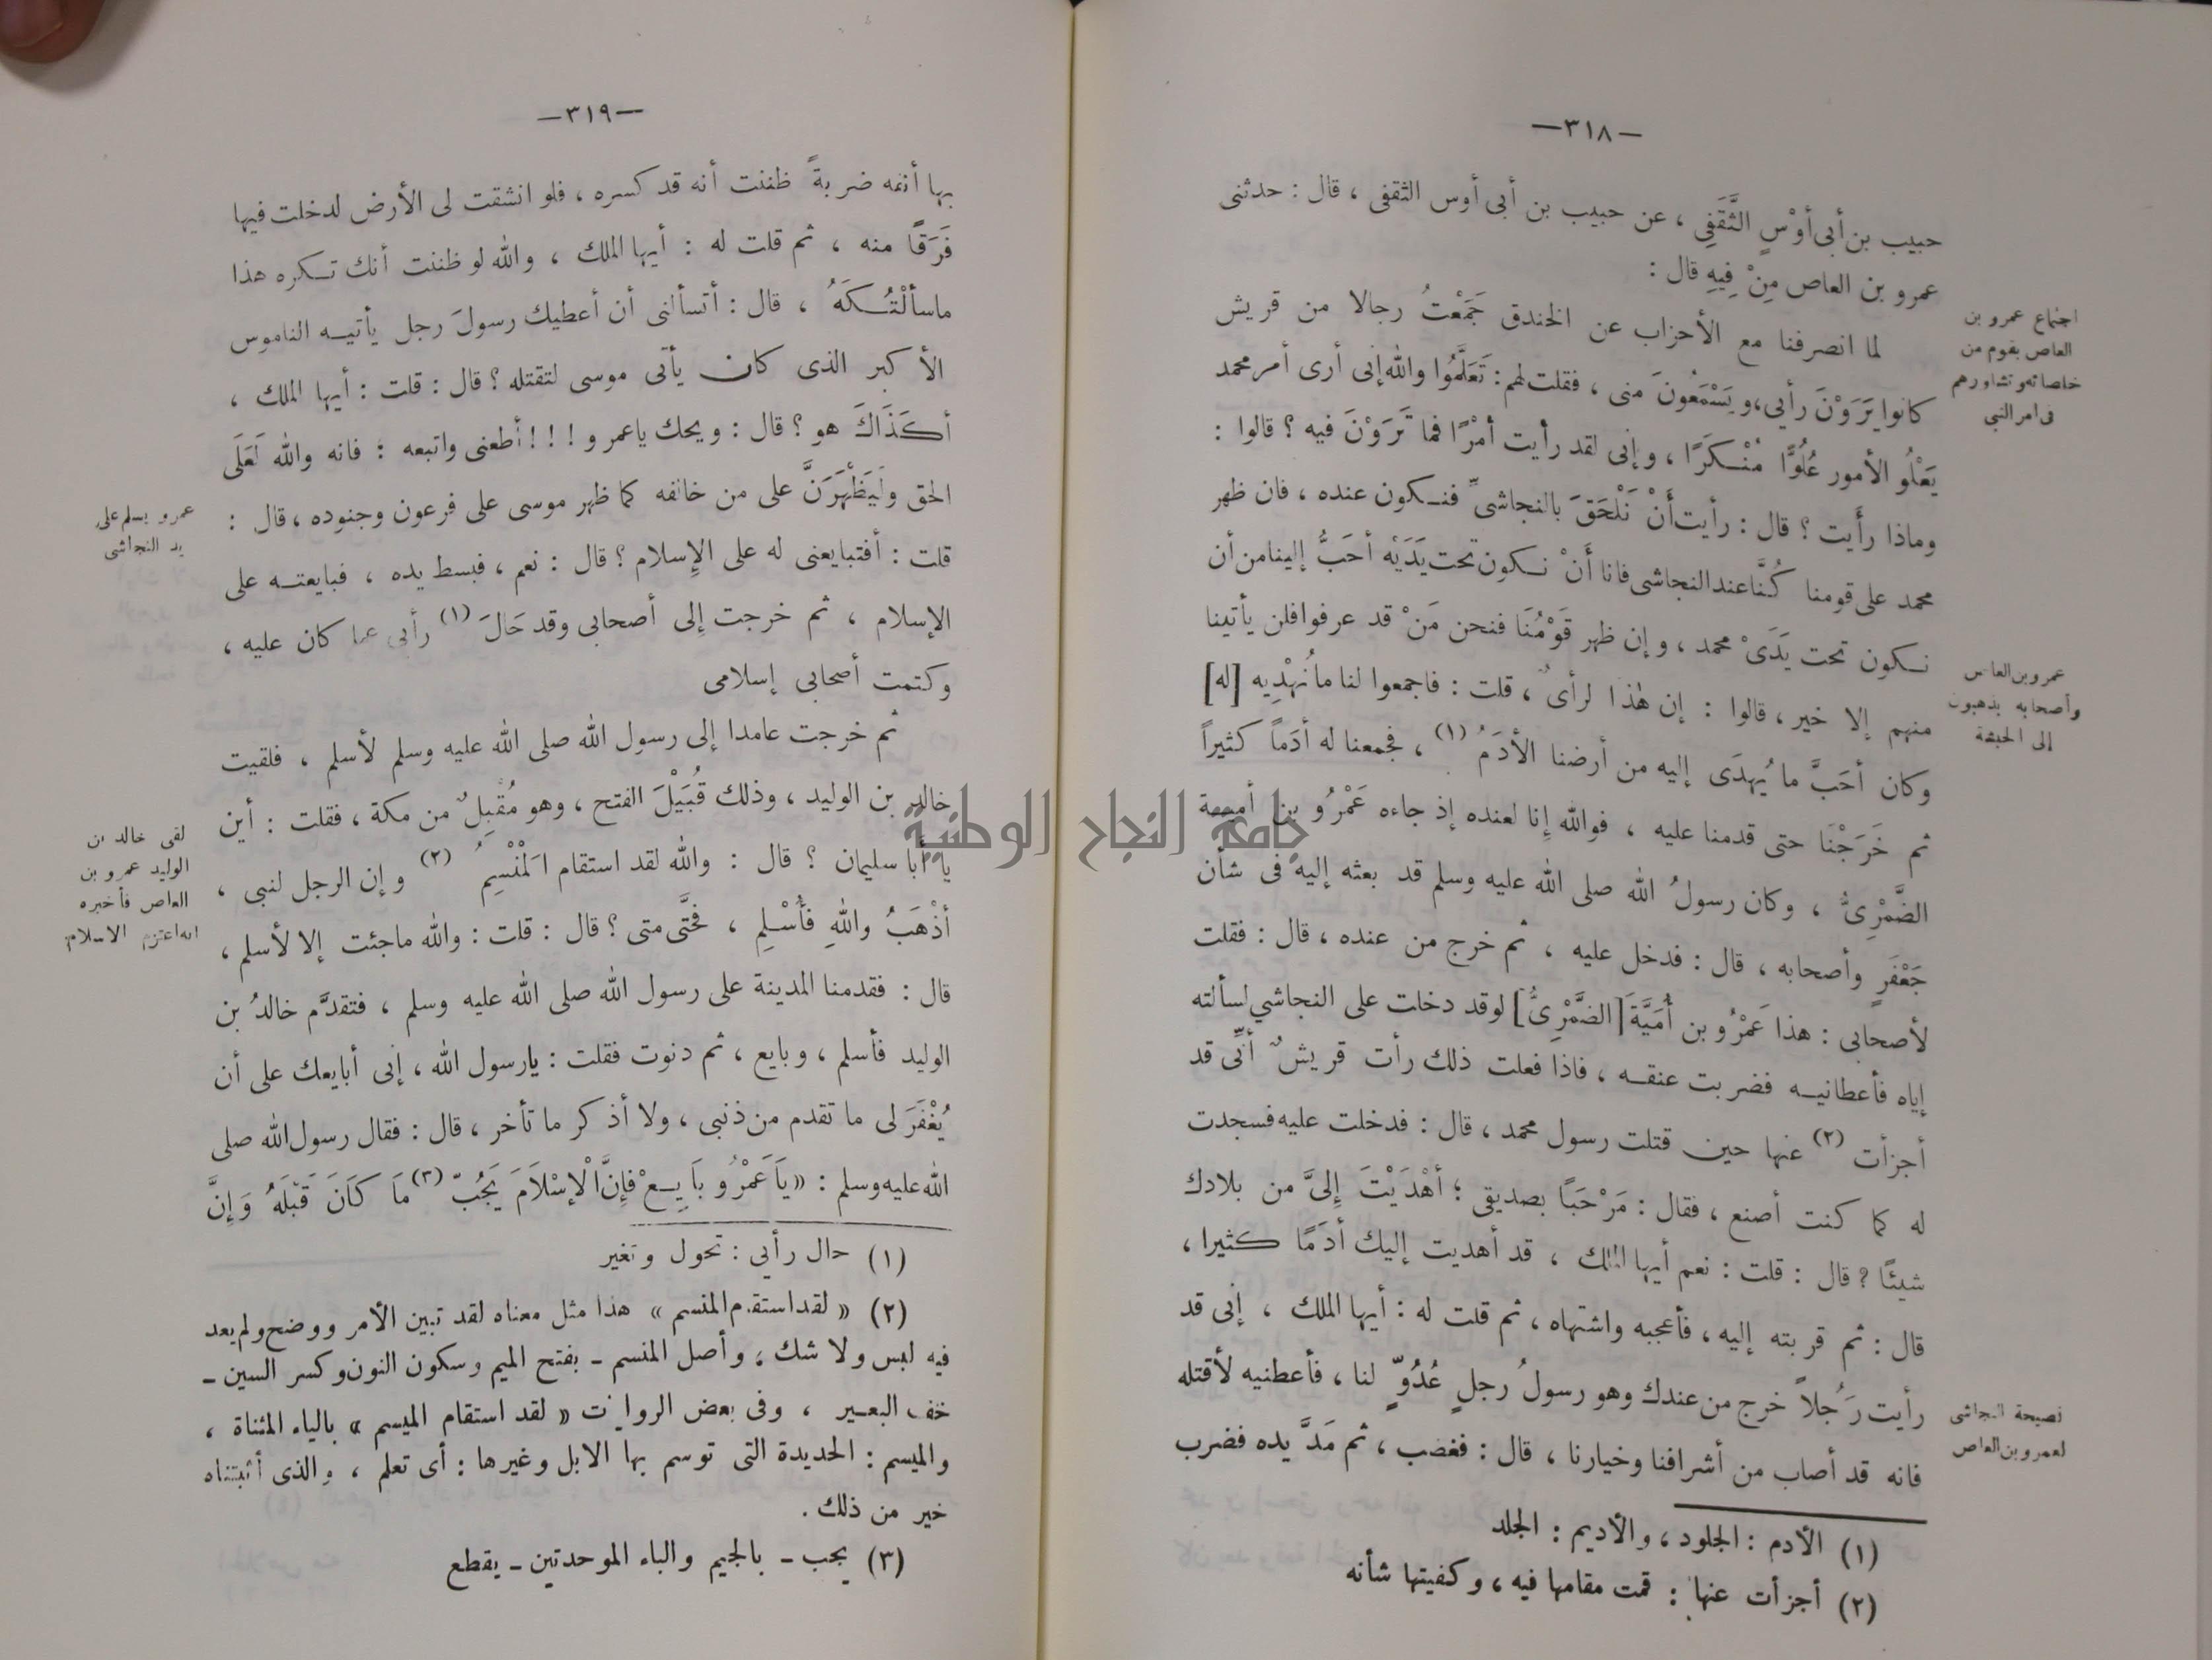 —٣١٨—
حبيب بن أبى أوْسٍ الثَّقَفِى ، عن حبيب بن أبى أوس الثقفى ، قال : حدثنى
عمرو بن العاص مِنْ فِيهِ قال :
لما انصرفنا مع الأحزاب عن الخندق جَمَعْتُ رجالا من قريش
كانوا يَرَوْنَ رأيى، ويَسْمَعُونَ منى ، فقلت لهم : تَعَلَّمُوا والله إنى أرى أمر محمد
يَعْلُو الأمور عُلُوًّا مُنْكَرًا ، وإنى لقد رأيت أمْرًا فما تَرَوْنَ فيه ؟ قالوا :
وماذا رأَيت ؟ قال : رأيت أَنْ نَلْحَقَ بالنجاشىِّ فنكون عنده ، فان ظهر
محمد على قومنا كُنَّا عند النجاشى فانا أَنْ نكون تحت يَدَيْه أحَبُّ إلينا من أن
نكون تحت يَدَىْ محمد ، وإن ظهر قَوْمُنَا فنحن مَنْ قد عرفوا فلن يأتينا
منهم إلا خير ، قالوا : إن هٰذا لرأىٌ ، قلت : فاجمعوا لنا ما نُهْدِيه [له]
وكان أحَبَّ ما يُهدَى إليه من أرضنا الأدَمُ (١) ، فجمعنا له أدَماً كثيراً
ثم خَرَجْنَا حتى قدمنا عليه ، فوالله إنا لعنده إذ جاءه عَمْرُو بن أمية
الضَّمْرِىُّ ، وكان رسولُ الله صلى الله عليه وسلم قد بعثه إليه فى شأن
جَعْفَرٍ وأصحابه ، قال : فدخل عليه ، ثم خرج من عنده ، قال : فقلت
لأصحابى : هذا عَمْرُو بن أُمَيَّةَ [الضَّمْرِىُّ] لو قد دخلت على النجاشي لسألته
إياه فأعطانيه فضربت عنقه ، فاذا فعلت ذلك رأت قريشٌ أنِّى قد
أجزأت (٢) عنها حين قتلت رسول محمد ، قال : فدخلت عليه فسجدت
له كما كنت أصنع ، فقال : مَرْحَبًا بصديقى ؛ أهْدَيْتَ إِلىَّ من بلادك
شيئًا ؟ قال : قلت : نعم أيها الملك ، قد أهديت إليك أدَمًا كثيرا ،
قال : ثم قربته إليه ، فأعجبه واشتهاه ، ثم قلت له : أيها الملك ، إنى قد
رأيت رَجُلاً خرج من عندك وهو رسولُ رجلٍ عُدُوٍّ لنا ، فأعطنيه لأقتله
فانه قد أصاب من أشرافنا وخيارنا ، قال : فغضب ، ثم مَدَّ يده فضرب
(١) الأدم : الجلود ، والأديم : الجلد
(٢) أجزأت عنها : قمت مقامها فيه ، وكفيتها شأنه
اجتماع عمرو بن
العاص بقوم من
خاصاته وتشاورهم
فى امر النبى
عمرو بن العاص
وأصحابه يذهبون
إلى الحبشة
نصيحة النجاشى
لعمرو بن العاص
—٣١٩—
بها أنفه ضربةً ظننت أنه قد كسره ، فلو انشقت لى الأرض لدخلت فيها
فَرَقًا منه ، ثم قلت له : أيها الملك ، والله لو ظننت أنك تكره هذا
ما سألْتُكَهُ ، قال : أتسألنى أن أعطيك رسولَ رجل يأتيه الناموس
الأكبر الذى كان يأتى موسى لتقتله ؟ قال : قلت : أيها الملك ،
أكَذَاكَ هو ؟ قال : ويحك يا عمرو ! ! ! أطعنى واتبعه ؛ فانه والله لَعَلَى
الحق وليَظْهَرَنَّ على من خالفه كما ظهر موسى على فرعون وجنوده ، قال :
قلت : أفتبايعنى له على الإسلام ؟ قال : نعم ، فبسط يده ، فبايعته على
الإسلام ، ثم خرجت إلى أصحابى وقد حَالَ (١) رأيى عما كان عليه ،
وكتمت أصحابى إسلامى
ثم خرجت عامدا إلى رسول الله صلى الله عليه وسلم لأسلم ، فلقيت
خالد بن الوليد ، وذلك قُبَيْلَ الفتح ، وهو مُقْبِلٌ من مكة ، فقلت : أين
يا أبا سليمان ؟ قال : والله لقد استقام الْمَنْسِمُ (٢) وإن الرجل لنبى ،
أذْهَبُ واللهِ فأُسْلِم ، فحَتَّى متى ؟ قال : قلت : والله ما جئت إلا لأسلم ،
قال : فقدمنا المدينة على رسول الله صلى الله عليه وسلم ، فتقدَّم خالدُ بن
الوليد فأسلم ، وبايع ، ثم دنوت فقلت : يارسول الله ، إنى أبايعك على أن
يُغْفَرَ لى ما تقدم من ذنبى ، ولا أذكر ما تأخر ، قال : فقال رسول الله صلى
الله عليه وسلم : «يَا عَمْرُو بَايِعْ فَإِنَّ الْإسْلَامَ يَجُبُّ (٣) مَا كَانَ قَبْلَهُ وَإِنَّ
(١) حال رأيي : تحول وتغير
(٢) « لقد استقام المنسم » هذا مثل معناه لقد تبين الأمر ووضح ولم يعد
فيه لبس ولا شك ، وأصل المنسم - بفتح الميم وسكون النون وكسر السين -
خف البعير ، وفى بعض الروايات « لقد استقام الميسم » بالياء المثناة ،
والميسم : الحديدة التى توسم بها الابل وغيرها : أى تعلم ، والذى أثبتناه
خير من ذلك .
(٣) يجب - بالجيم والباء الموحدتين - يقطع
عمرو يسلم على
يد النجاشى
لقى خالد بن
الوليد عمرو بن
العاص فأخبره
انه اعتزم الاسلام
جامعة النجاح الوطنية